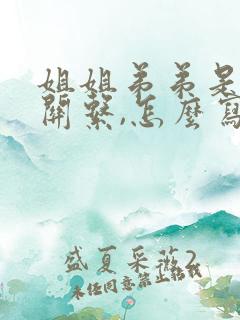 姐姐弟弟是
關繫,怎麼寫
盛夏采薇2
未经同意禁止转载